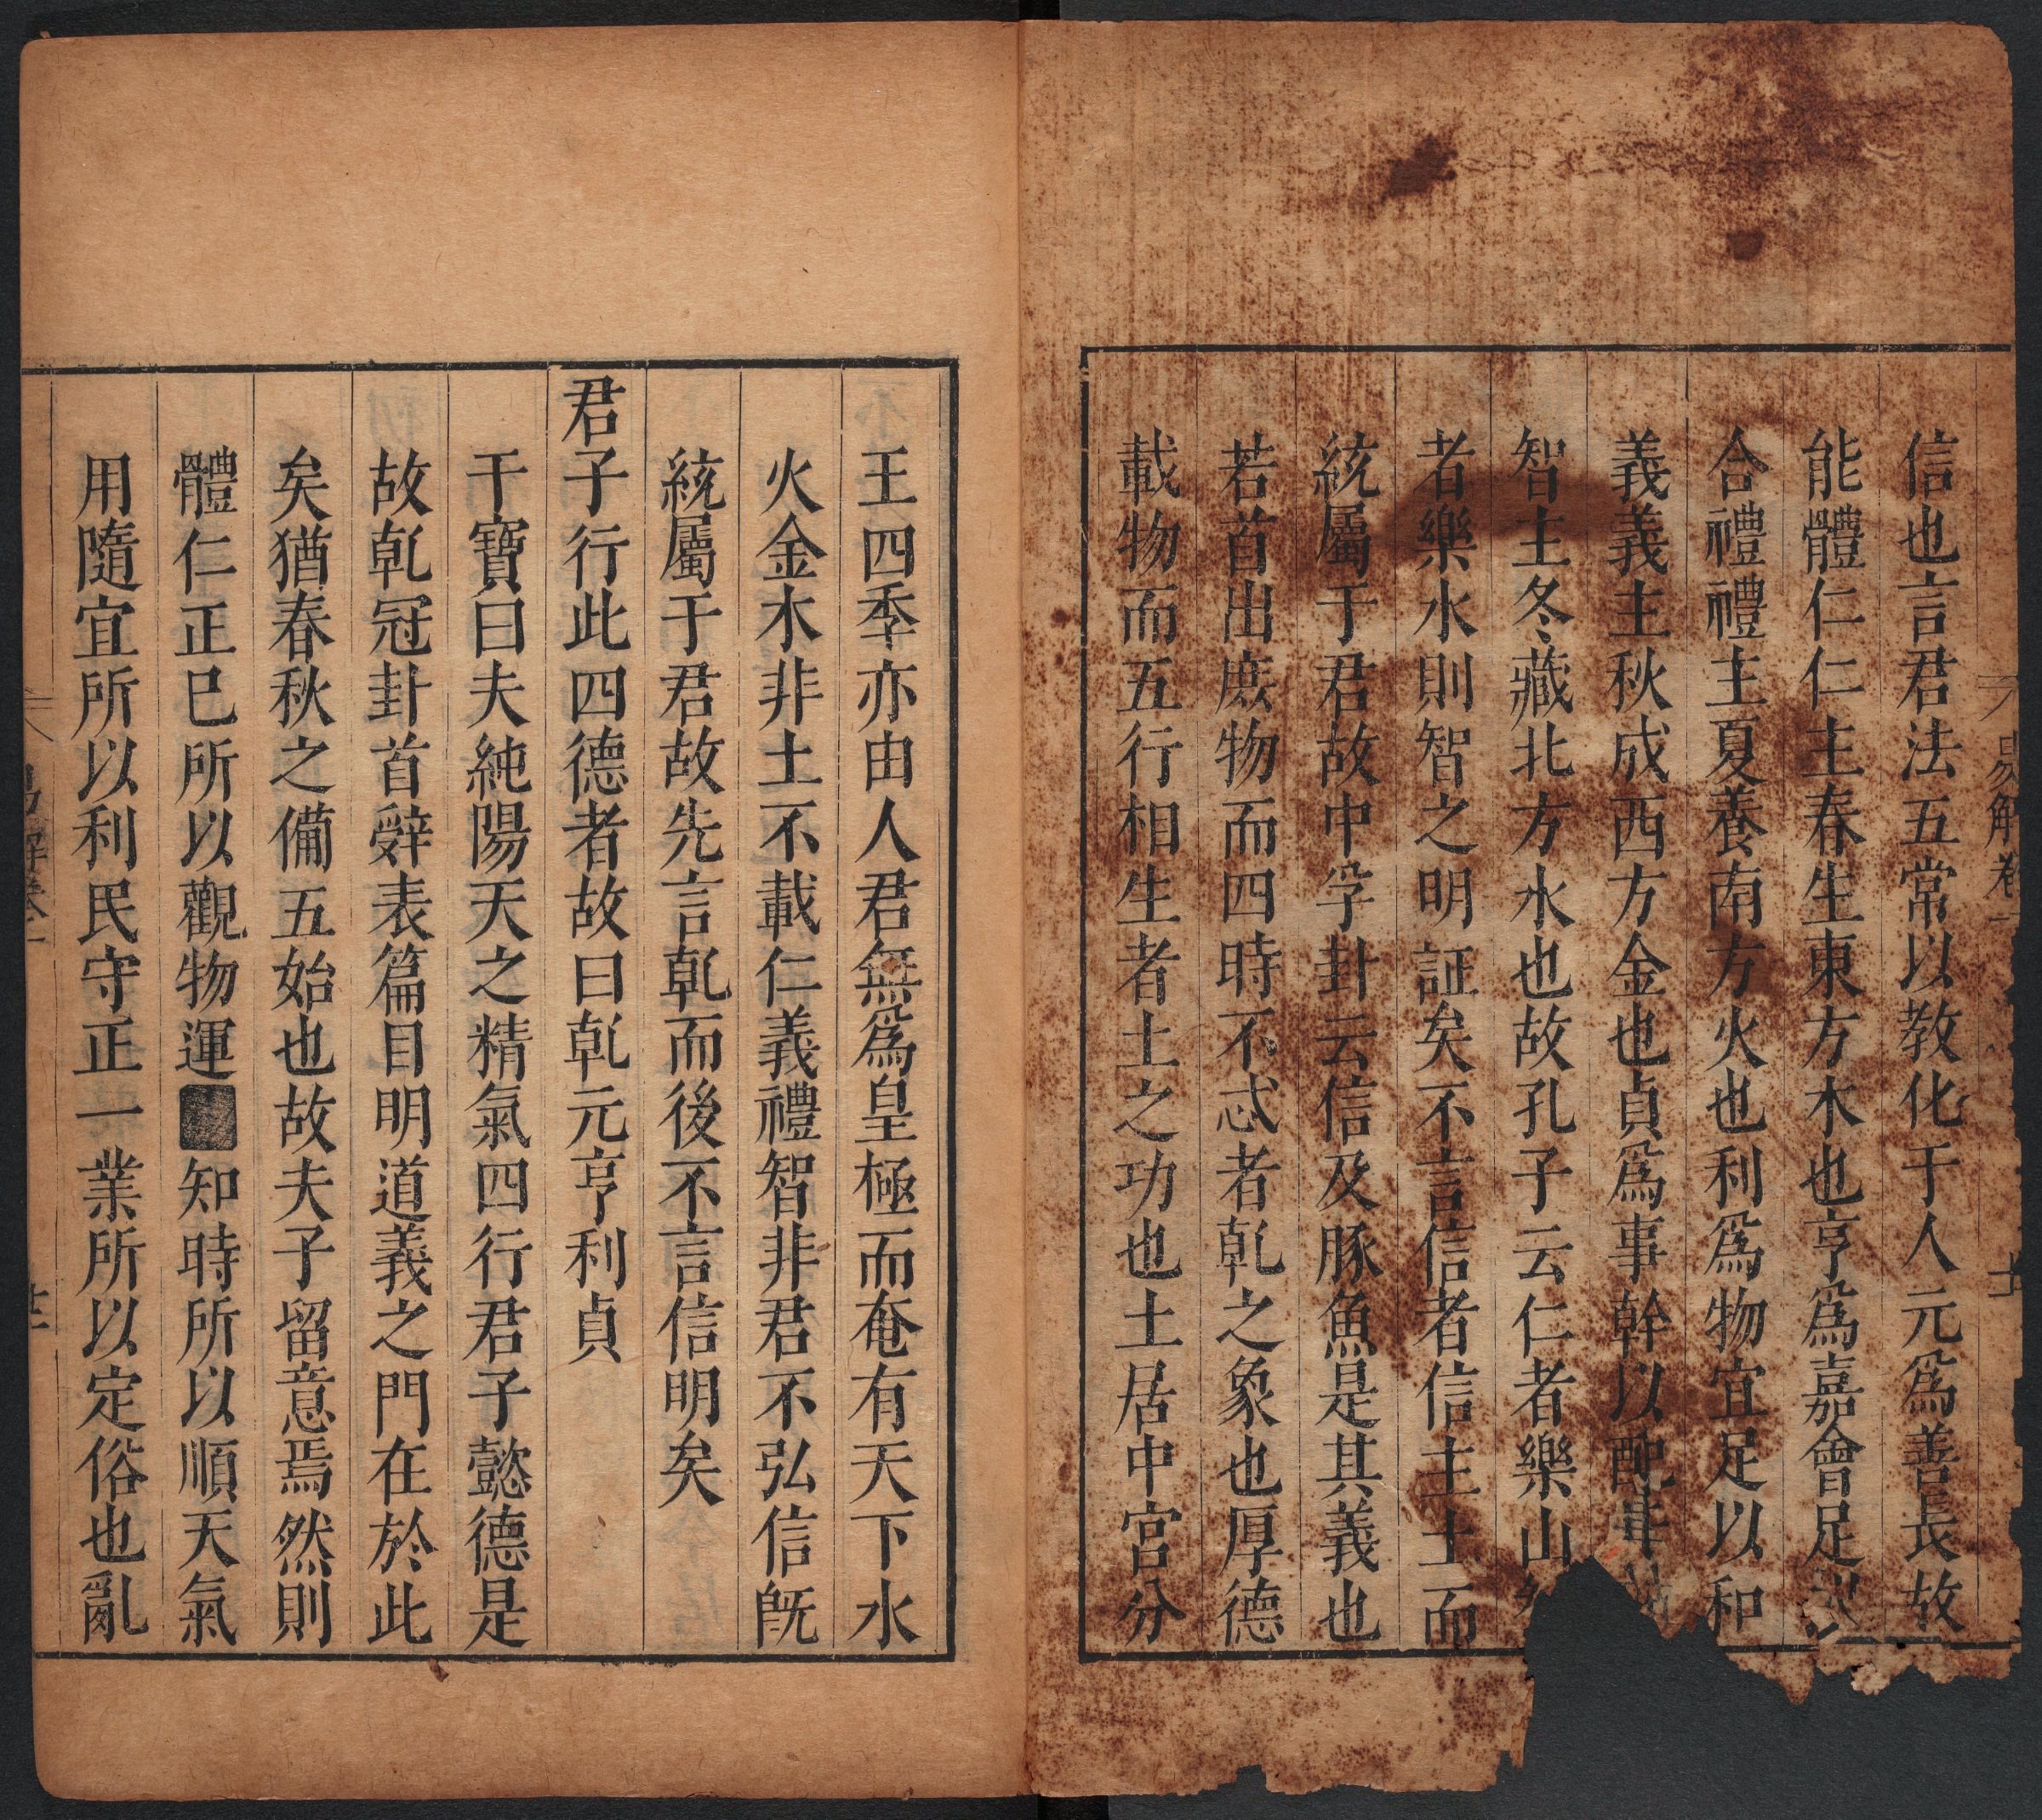 信也言君法五常以教化于人元爲善長故
能體仁仁主春生東方木也亨爲嘉會足以
合禮禮主夏養南方火也利爲物宜足以和
義義主秋成西方金也貞爲事幹以配
智主冬藏北方水也故孔子云仁者樂山
者樂水則智之明証矣不言信者信主土而
統屬于君故中孚卦云信及豚魚是其義也
若首出庶物而四時不忒者乹之象也厚德
載物而五行相生者土之功也土居中宮分
王四季亦由人君無爲皇極而奄有天下水
火金木非土不載仁義禮智非君不弘信旣
統屬于君故先言乹而後不言信明矣
君子行此四德者故曰乹元亨利貞
干寶曰夫純陽天之精氣四行君子懿德是
故乹冠卦首辤表篇目明道義之門在於此
矣猶春秋之備五始也故夫子留意焉然則
體仁正已所以觀物運知時所以順天氣
用隨宜所以利民守正一業所以定俗也亂
易解卷一